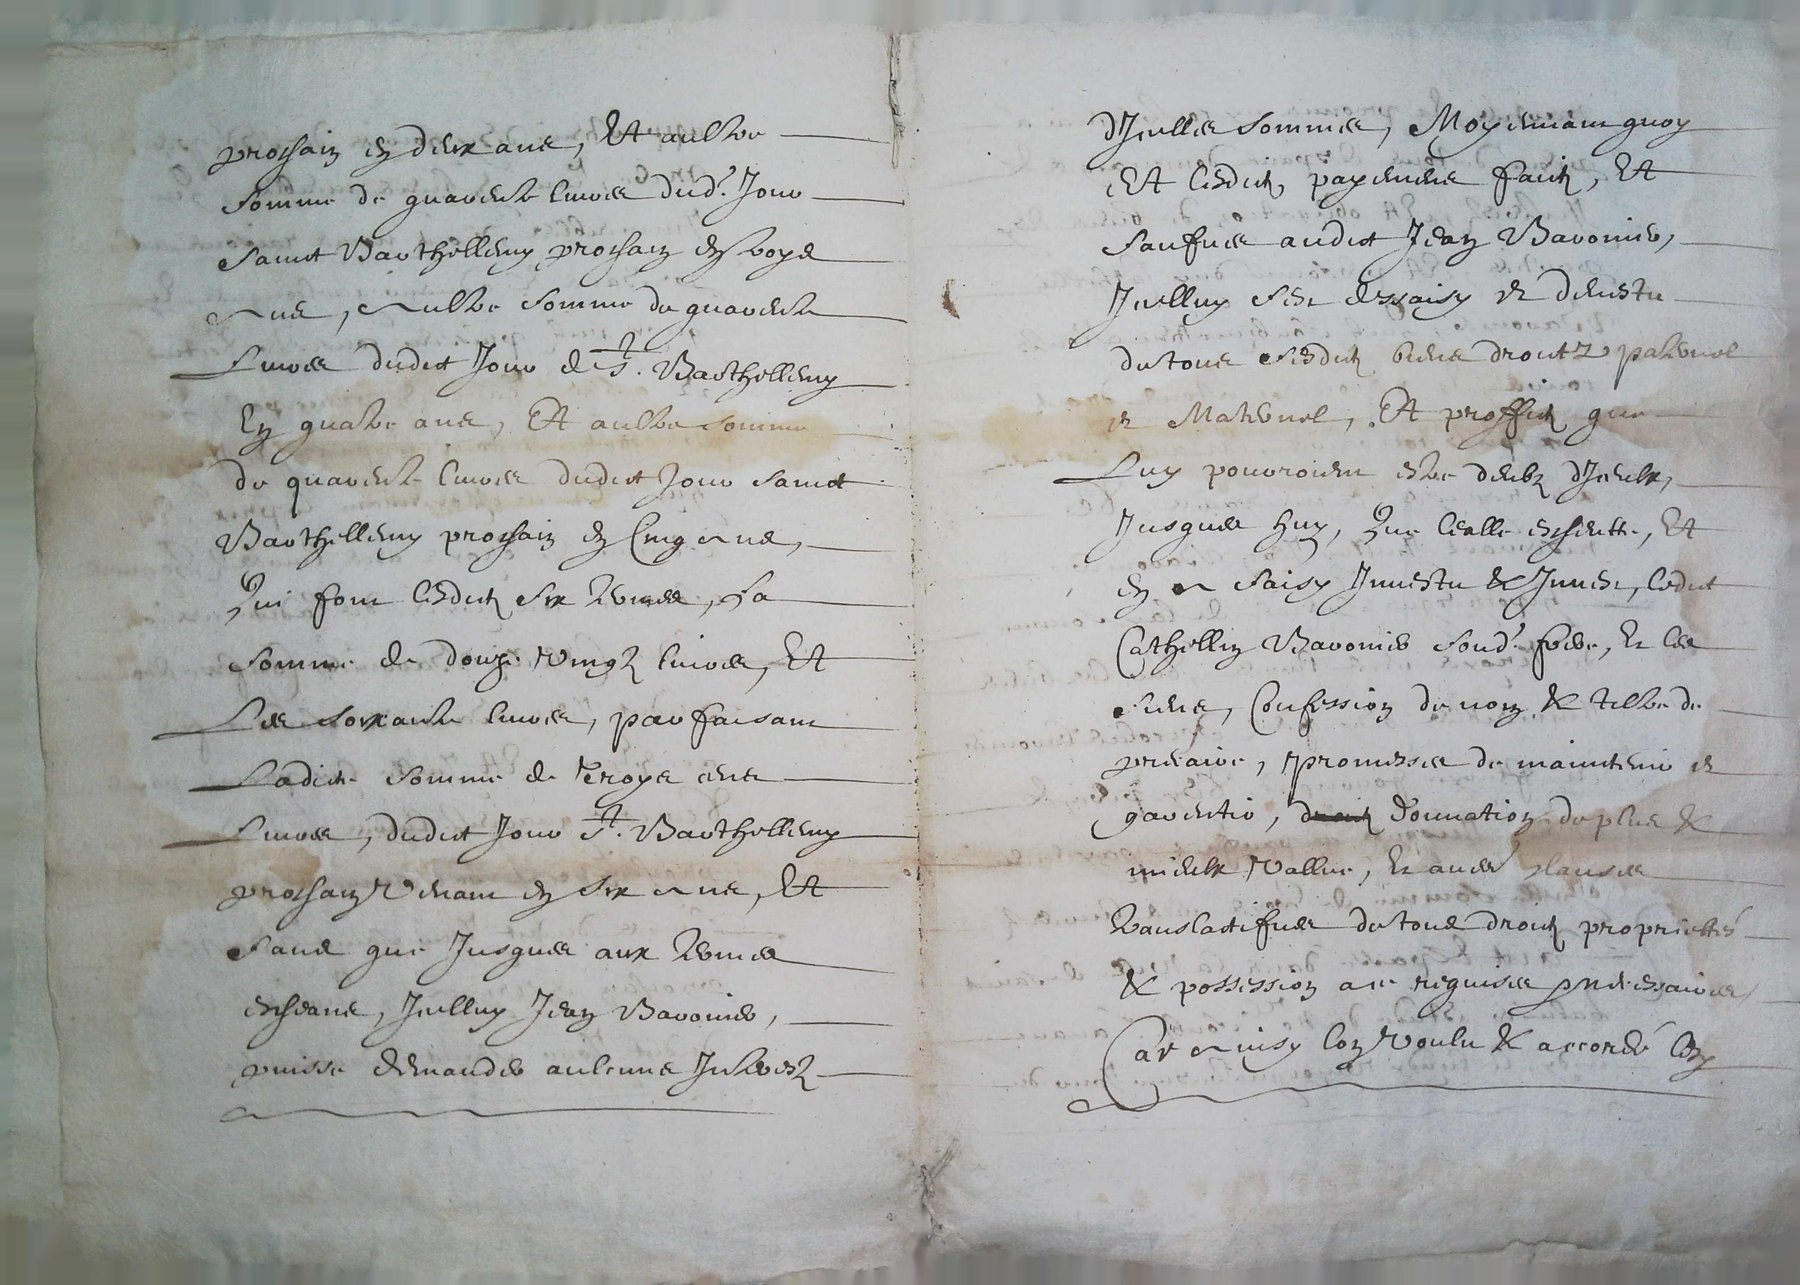 prochain en deux ans, Et aultre
somme de quarente livres dud.t Jour
Sainct Barthellemy prochain en troys
ans, aultre somme de quarente
Livres dudict Jour de St. Barthellemy
En quatre ans, Et aultre somme
de quarente livres dudict Jour Sainct
Barthellemy prochain en Cinq ans,
Qui font lesdictz six termes, La
somme de douze vingtz livres, Et
Les soixante livres, parfaisant
Ladicte somme de troys cens
Livres, dudict Jour St. Barthellemy
prochain venant en six ans, Et
sans que Jusques aux termes
escheans, Jcelluy Jean Baronier,
puisse demander aulcune Jnterestz
d'Jcelles sommes, Moyennant quoy
Et lesdictz payemens faictz, Et
saufues audict Jean Baronier,
Jcelluy s'est dessaisy et devestu
de tous sesdictz biens droictz paternel
et Maternel, Et proffictz que
Luy pouvroient estre deubz d'Jceulx,
Jusques huy, que l'ealle escheutte, Et
en a saisy Jnvestu & Jnvest, ledict
Cathellin Baronier sond.t frere, Et les
siens, Confession de nom & tiltre de
precaire, promesses de maintenir et
garentir, donnation de plus &
mieulx vallue, Et aultres clauses
translatifues de tous droictz proprietés
& possession a ce requises & necessaires,
Car ainsy l'on voulu & accordé lesd.